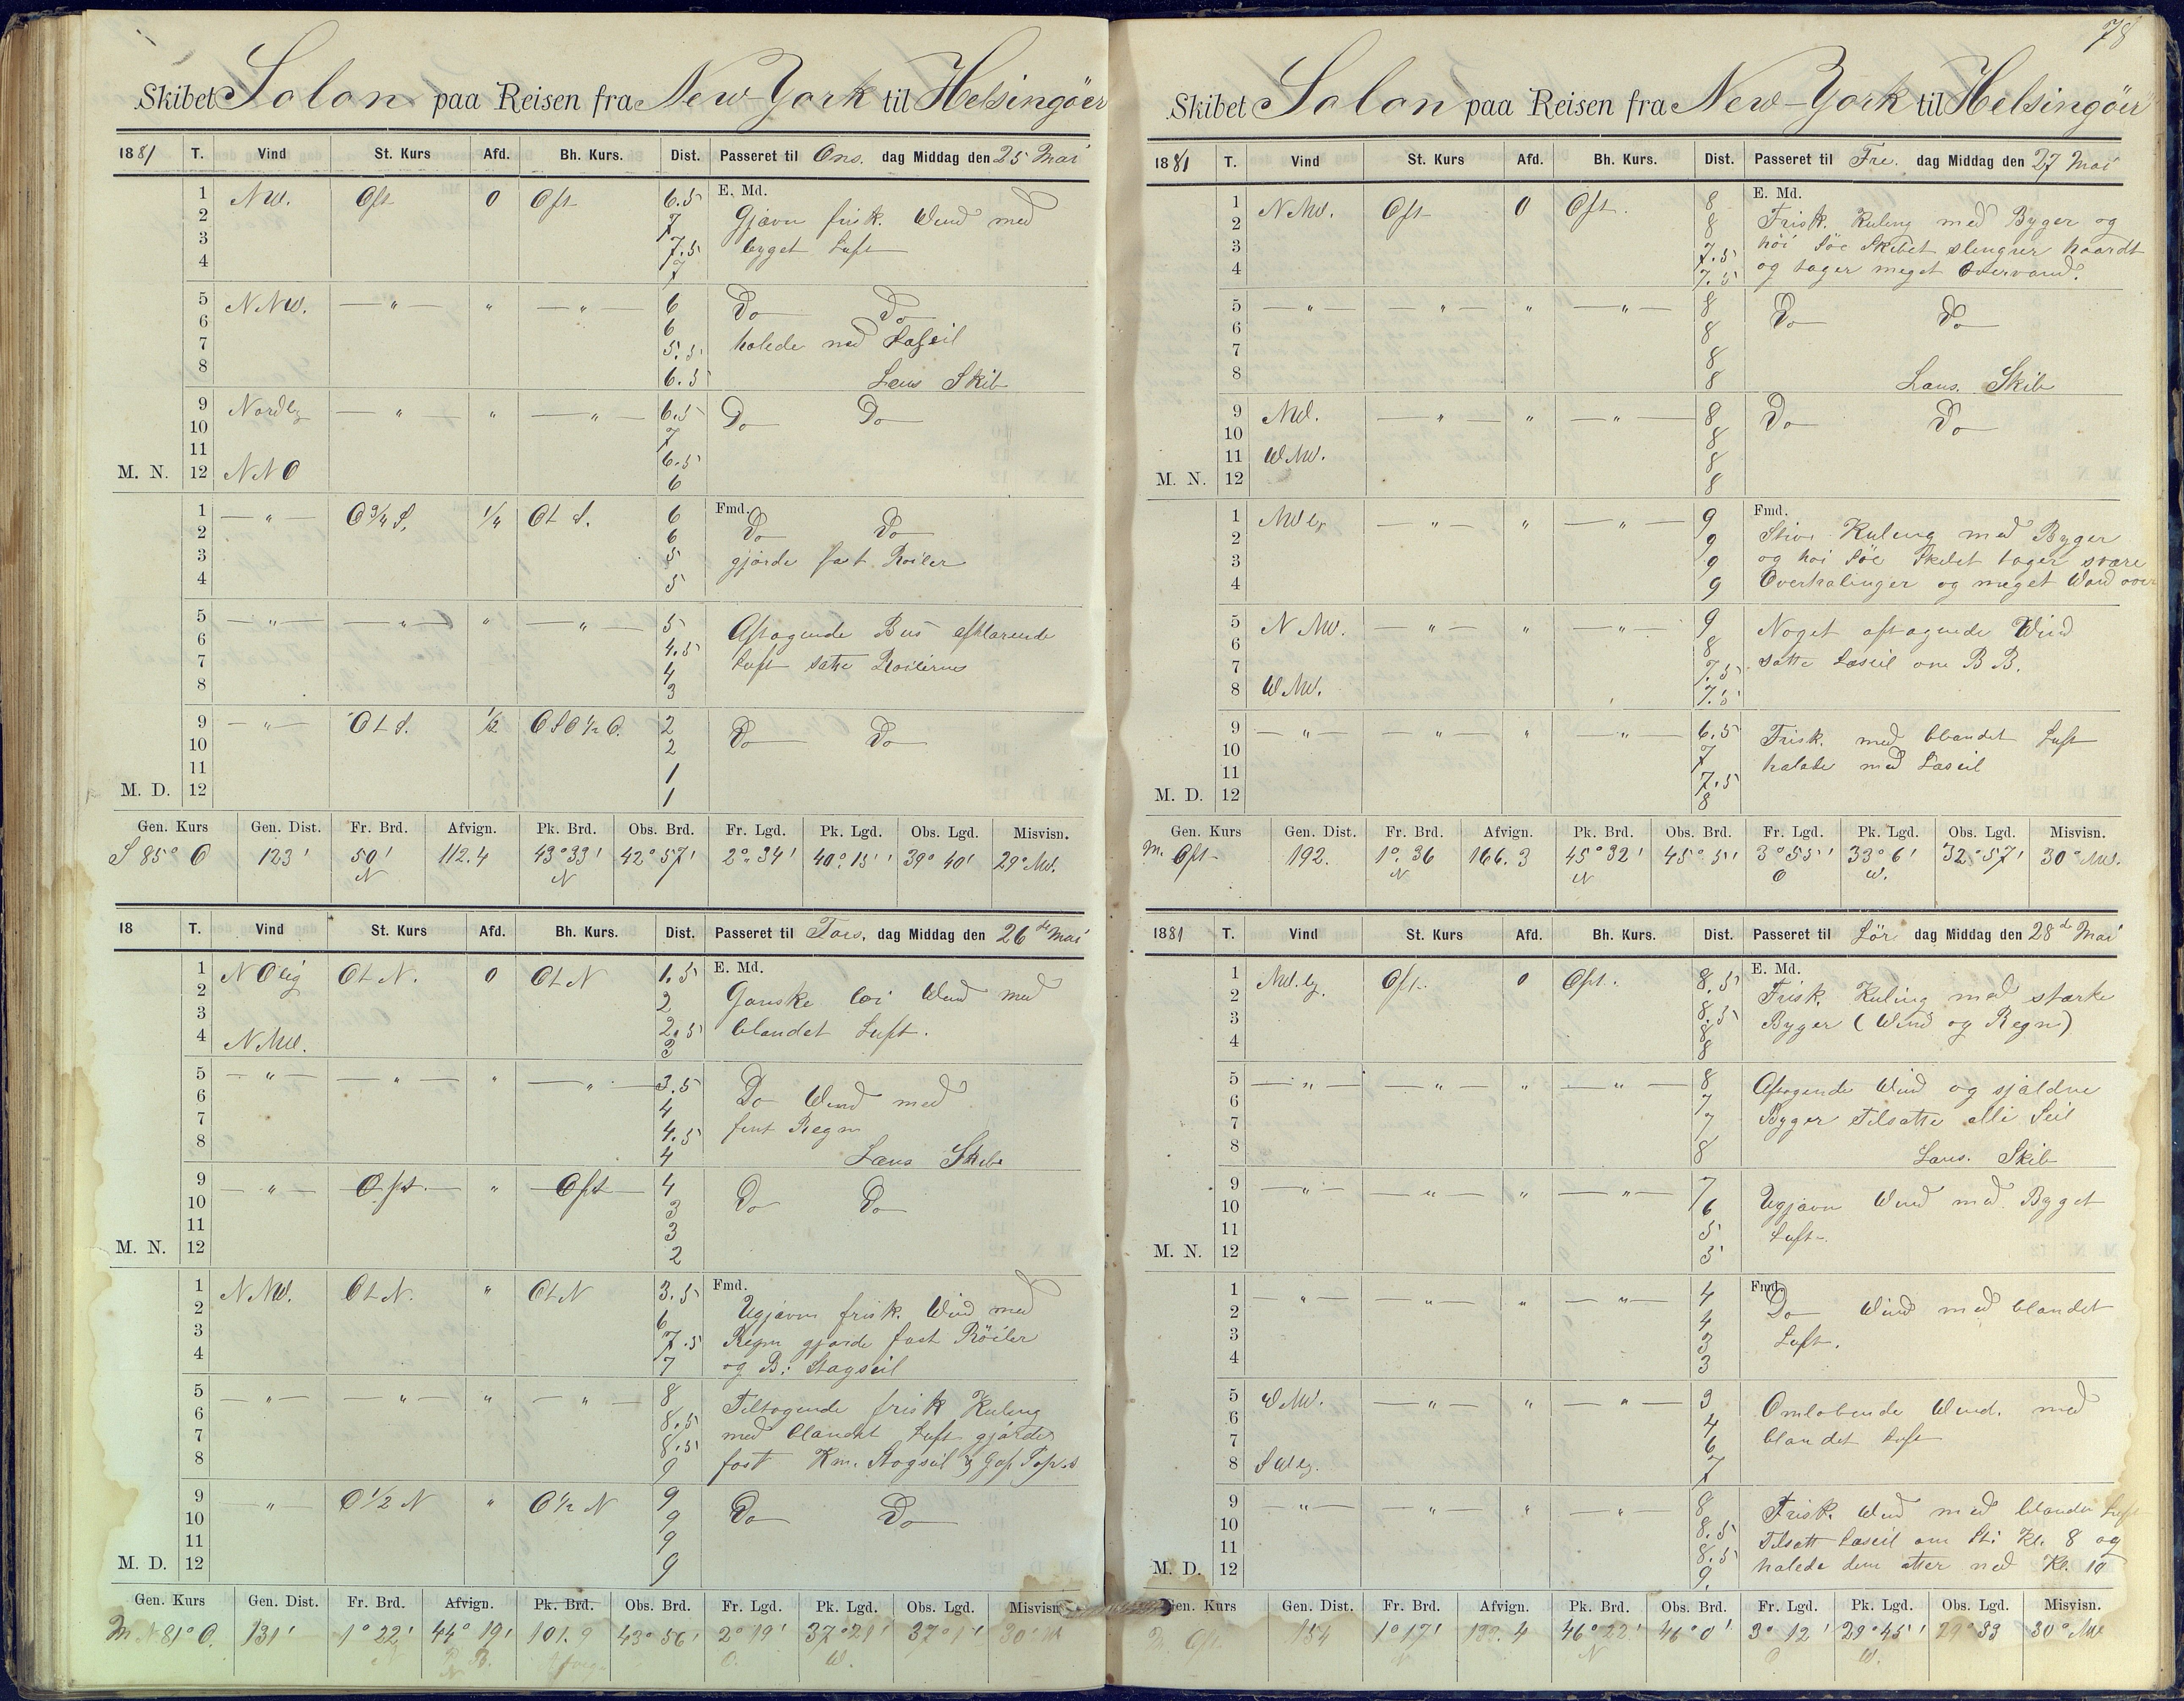 Skibet Solon paa Reisen fra New-York til Helsingöer
1881 T. Vind St. Kurs Afd. Bh. Kurs. Dist. Passeret til Ons. dag Middag den 25 Mai
E. Md.
1 NW. Ost 0 Ost 6.5 Gjævn frisk. Wind med
2 7
3 7.5 byget Luft
4 7
5 NNW. —"— " —"— 6 Do Do
6 6
7 5.5 halede ned Læseil
8 6.5 Læns Skib
9 Nordlg —"— " —"— 6.5 Do Do
10 7
11 6.5
M. N. 12 NNO 6
Fmd.
1 —"— O3/4 S. 1/4 Ot S. 6 Do Do
2 6
3 5 gjorde fast Roiler
4 5
5 —"— —"— " —"— 5 Aftagende Bris opklarende
6 4.5
7 4 Luft satte Roilerne
8 3
9 —"— Ot S. 1/2 OSO 1/2 O. 2 Do Do
10 2
11 1
M. D. 12 1
Gen. Kurs Gen. Dist. Fr. Brd. Afvign. Pk. Brd. Obs. Brd. Fr. Lgd. Pk. Lgd. Obs. Lgd. Misvisn.
S 85° O 123' 50' 112.4 43° 33' 42° 57' 2° 34' 40° 15' 39° 40' 29° NW.
N N
18 T. Vind St. Kurs Afd. Bh. Kurs. Dist. Passeret til Tors. dag Middag den 26de Mai
E. Md.
1 NOlig Ot N. 0 Ot N 1.5 Ganske løi Wind med
2 2
3 2.5 blandet Luft.
4 NNW. 3
5 —"— —"— " —"— 3.5 Do Wind med
6 4
7 4.5 fint Regn
8 4 Læns Skib
9 —"— Ost " Ost 4 Do Do
10 3
11 3
M. N. 12 2
Fmd.
1 NNW. Ot N. " Ot N 3.5 Ugjævn frisk. Wind med
2 6
3 7.5 Regn gjorde fast Röiler
4 7 og B: Stagseil
5 —"— —"— " —"— 8 Tiltagende frisk Kuling
6 8.5 med blandet Luft gjorde
7 8.5
8 9 fast Km. Stagseil & Gaf Tops
9 —"— O 1/2 N " O 1/2 N 9 Do Do
10 9
11 9
M. D. 12 9
Gen. Kurs Gen. Dist. Fr. Brd. Afvign. Pk. Brd. Obs. Brd. Fr. Lgd. Pk. Lgd. Obs. Lgd. Misvisn.
M N 81° O. 131' 1° 22' 44° 19' 101.9 43° 56' 2° 19' 37° 21' 37° 1' 30°
N P. B. Afvign O. W.
N
78
Skibet Solon paa Reisen fra New-York til Helsingöer
1881 T. Vind St. Kurs Afd. Bh. Kurs. Dist. Passeret til Fre. dag Middag den 27 Mai
E. Md.
1 NNW. Ost 0 Ost. 8 Frisk. Kuling med Byger og
2 8
3 7.5 höi Söe Skibet slingrer haardt
4 7.5 og tager meget Overvand.
5 —"— —"— " —"— 8 Do Do
6 8
7 8
8 8 Læns. Skib
9 NW. —"— " —"— 8 Do Do
10 8
11 WNW. 8
M. N. 12 8
Fmd.
1 NWlg —"— " —"— 9 Stiv Kuling med Byger
2 9
3 9 og höi Söe Skibet tager svære
4 9 Overhalinger og meget Wand over
5 NNW. —"— " —"— 9 Noget aftagende Wind
6 8
7 7.5 satte Læseil om B B.
8 WNW. 7.5
9 —"— —"— " —"— 6.5 Frisk. med blandet Luft
10 7
11 7.5 halede ned Læseil
M. D. 12 8
Gen. Kurs Gen. Dist. Fr. Brd. Afvign. Pk. Brd. Obs. Brd. Fr. Lgd. Pk. Lgd. Obs. Lgd. Misvisn.
M. Ost 192. 1° 36 166.3 45° 32' 45° 5' 3° 55' 33° 6' 32° 57' 30° NW.
N N O W.
1881 T. Vind St. Kurs Afd. Bh. Kurs. Dist. Passeret til Lör dag Middag den 28de Mai
E. Md.
1 NW.lg. Ost. 0 Ost. 8.5 Frisk. Kuling med stærke
2 8.5
3 8 Byger (Wind og Regn)
4 8
5 —"— —"— " —"— 8 Aftagende Wind og sjældne
6 7
7 7 Byger Tilsatte alle Seil
8 8 Læns. Skib
9 —"— —"— " —"— 7 Ugjævn Wind med Byget
10 6
11 5 Luft.
M. N. 12 5
Fmd.
1 —"— —"— " —"— 4 Do Wind med blandet
2 4
3 3 Luft.
4 3
5 WNW. —"— " —"— 3 Omlobende Wind. med
6 4
7 6 blandet Luft
8 SWlg. 7
9 —"— —"— " " 8 Frisk. Wind med blandet Luft
10 8.5
11 8.5 Tilsatt Læseil om St: Kl. 8 og
M. D. 12 9. halede dem atter ned Kl. 10
Gen. Kurs Gen. Dist. Fr. Brd. Afvign. Pk. Brd. Obs. Brd. Fr. Lgd. Pk. Lgd. Obs. Lgd. Misvisn.
M. Ost 154 1° 17' 133.4 46° 22' 46° 0' 3° 12' 29° 45' 29° 33 30° NW
N N O W.